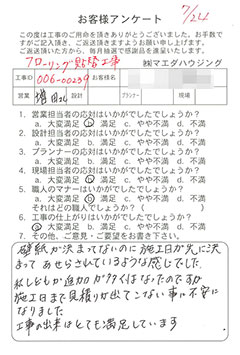 7/24
お客様アンケート
この度は工事のご用命を頂きありがとうございます。お手数で
すがご記入頂き、ご返送頂きますようお願い申し上げます。
ご返送頂いた方から、毎月抽選で感謝品を進呈いたします。
フローリング貼替工事 ㈱マエダハウジング
工事ID 006-00239 様
営業 増田 設計 プランナー 現場
1. 営業担当者の応対はいかがでしたでしょうか?
a. 大変満足 b. 満足 c. やや不満 d. 不満
2. 設計担当者の応対はいかがでしたでしょうか?
a. 大変満足 b. 満足 c. やや不満 d. 不満
3. プランナーの応対はいかがでしたでしょうか?
a. 大変満足 b. 満足 c. やや不満 d. 不満
4. 現場担当者の応対はいかがでしたでしょうか?
a. 大変満足 b. 満足 c. やや不満 d. 不満
5. 職人のマナーはいかがでしたでしょうか?
a. 大変満足 b. 満足 c. やや不満 d. 不満
それはどの職人でしょうか?( )
6. 工事の仕上がりはいかがでしたでしょうか?
a. 大変満足 b. 満足 c. やや不満 d. 不満
7. その他、ご意見・ご要望をお書き下さい。
壁紙が決まってないのに施工日が先に決
まって あせらさんているような感じでした。
私しどもが追加がタタイはなったのですが
施工日まで見積りが出てこない事に不安に
なりました
工事の出来はとても満足しています